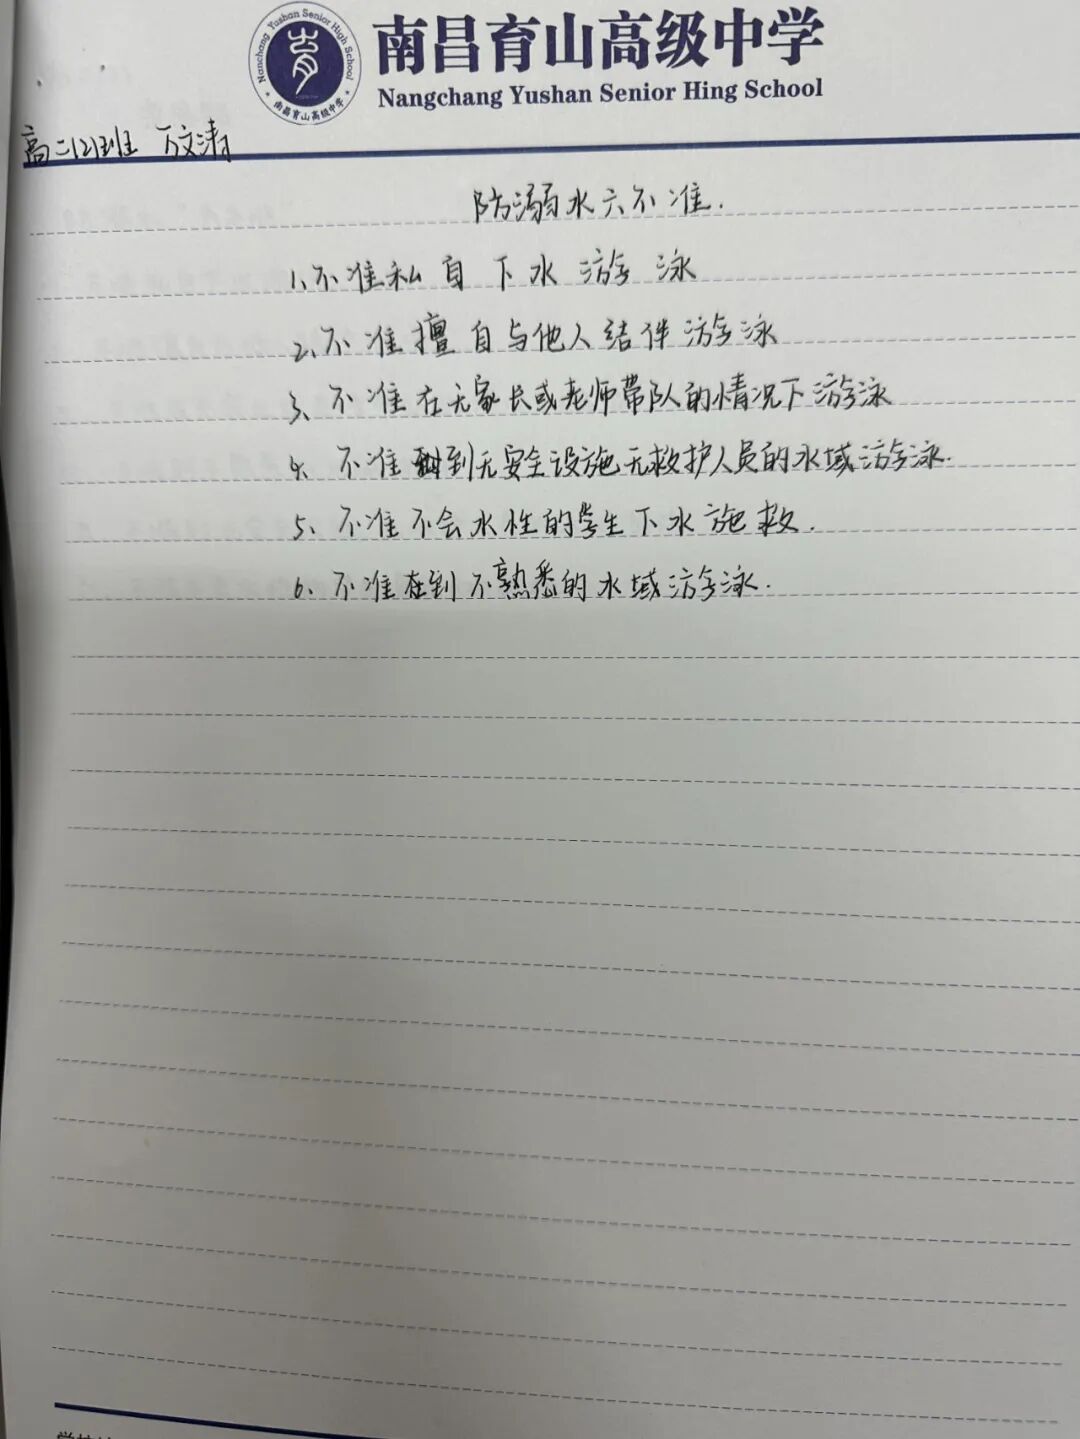 Nanchang Yushan Senior High School
南昌育山高级中学
南昌育山高级中学
Nangchang Yushan Senior Hing School
高二(2)班 万文涛
防溺水六不准.
1、不准私自下水游泳
2、不准擅自与他人结伴游泳
3、不准在无家长或老师带队的情况下游泳
4、不准到无安全设施无救护人员的水域游泳.
5、不准不会水性的学生下水施救.
6、不准在到不熟悉的水域游泳.